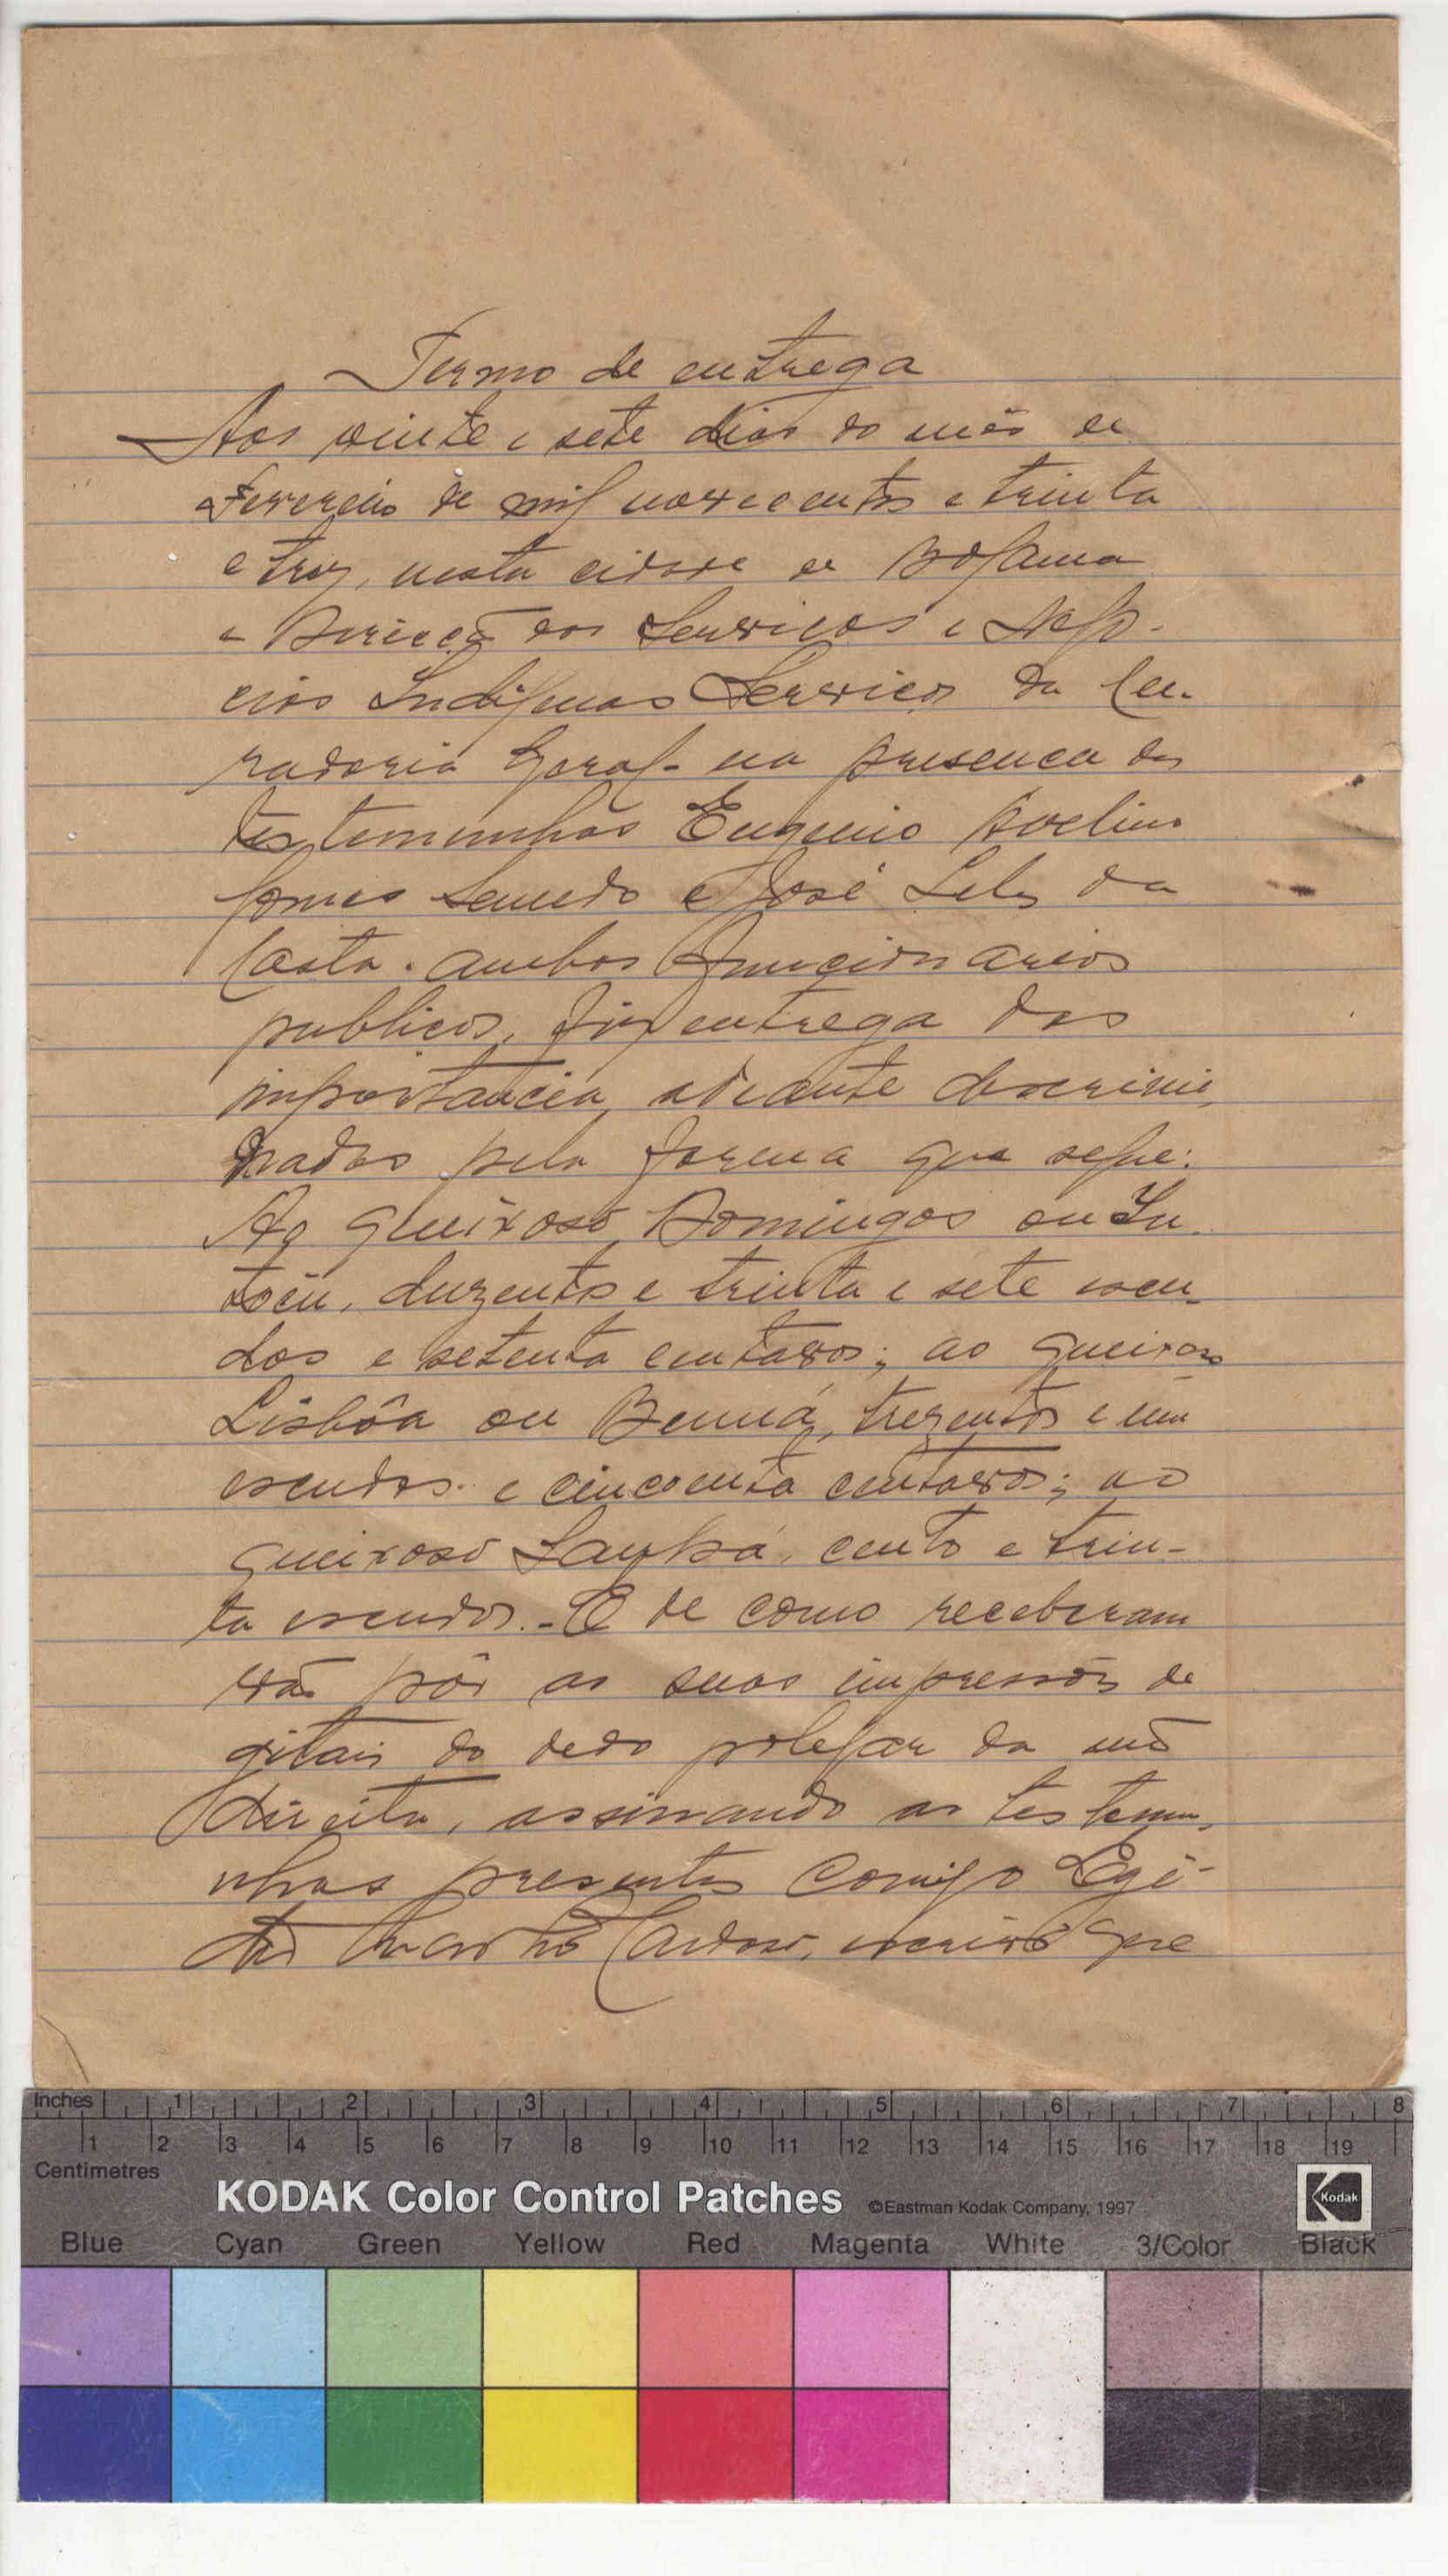 Termo de entrega
Aos vinte e sete dias do mês de
Fevereiro de mil novecentos e trinta
e trez, nesta cidade de Bolama
e Direcção dos Serviços e Negó-
cios Indigenas Serviços da Cu-
radoria Geral - na presença das
testemunhas Eugenio Avelino
Gomes Semedo e José Lela da
Costa. ambos funcionarios
publicos, fiz entrega das
importancia adeante descrimi-
nadas pela forma que segue:
Ao queixoso Domingos ou
duzentos e trinta e sete escu-
dos e setenta centavos; ao queixoso
Lisbôa ou trezentos e um
escudos e cincoenta centavos; ao
queixoso cento e trin-
ta escudos. - E de como receberam
vão pôr as suas impressões de
gitais do dedo polegar da mão
direita, assinando as testemu-
nhas presentes comigo Egi-
Cardoso, escrivão que
Inches 1 2 3 4 5 6 7 8
1 2 3 4 5 6 7 8 9 10 11 12 13 14 15 16 17 18 19
Centimetres
KODAK Color Control Patches ©Eastman Kodak Company, 1997 Kodak
Blue Cyan Green Yellow Red Magenta White 3/Color Black